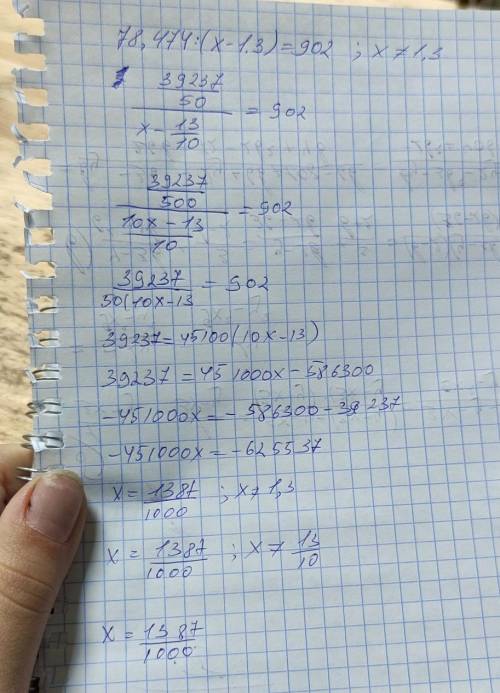 78,474:(x-1.3)=902 ; x≠1,3
39237
50
= 902
x - 13
10
39237
500
= 902
10x - 13
10
39237 = 902
50(10x-13
39237=45100(10x-13)
39237 =451000x-586300
-451000x=- 586300-39237
-451000x=-625537
x= 1387 ; x≠1,3
1000
x = 1387 ; x≠ 13
1000 10
x = 1387
1000